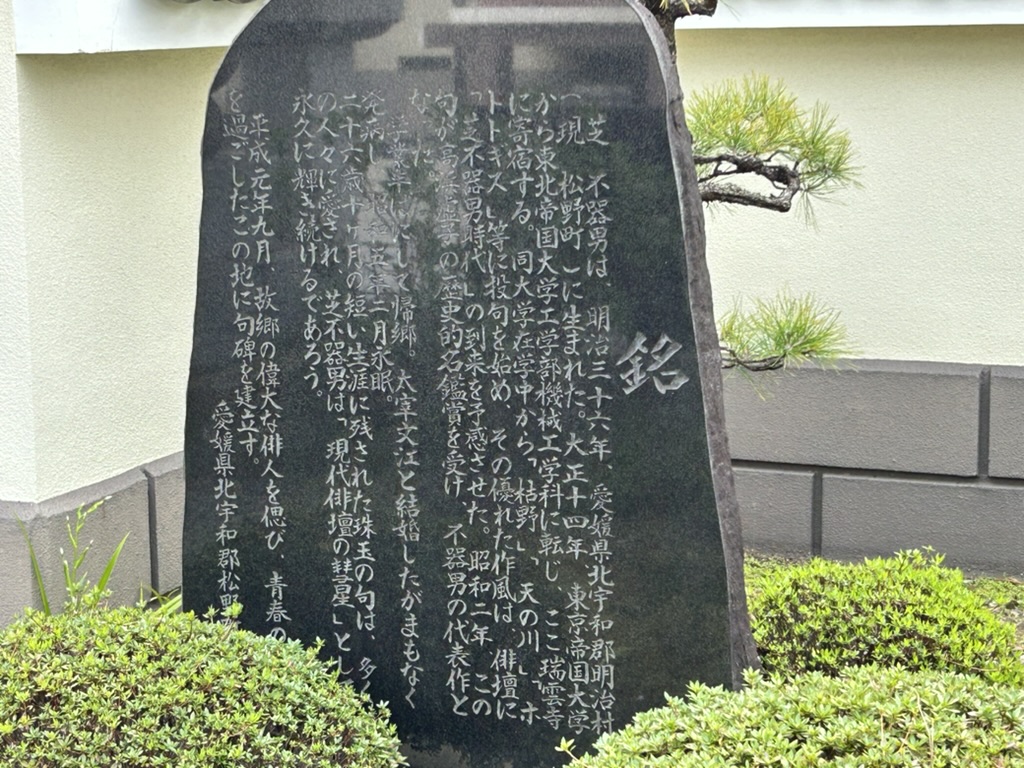 銘
芝不器男は、明治三十六年、愛媛県北宇和郡明治村
(現 松野町)に生まれた。大正十四年 東京帝国大学
から東北帝国大学工学部機械工学科に転じ、ここ瑞雲寺
に寄宿する。同大学在学中から「枯野」「天の川」「ホ
トトギス」等に投句を始め、その優れた作風は、俳壇に
「芝不器男時代」の到来を予感させた。昭和二年 この
句が高浜虚子の歴史的名鑑賞を受け、不器男の代表作と
なった。
学業半ばにして帰郷。太宰文江と結婚したがまもなく
発病し、昭和五年二月永眠。
二十六歳十ヶ月の短い生涯に残された珠玉の句は、多く
の人々に愛され、芝不器男は「現代俳壇の彗星」とし
永久に輝き続けるであろう。
平成元年九月、故郷の偉大な俳人を偲び、青春の
を過ごしたこの地に句碑を建立す。
愛媛県北宇和郡松野